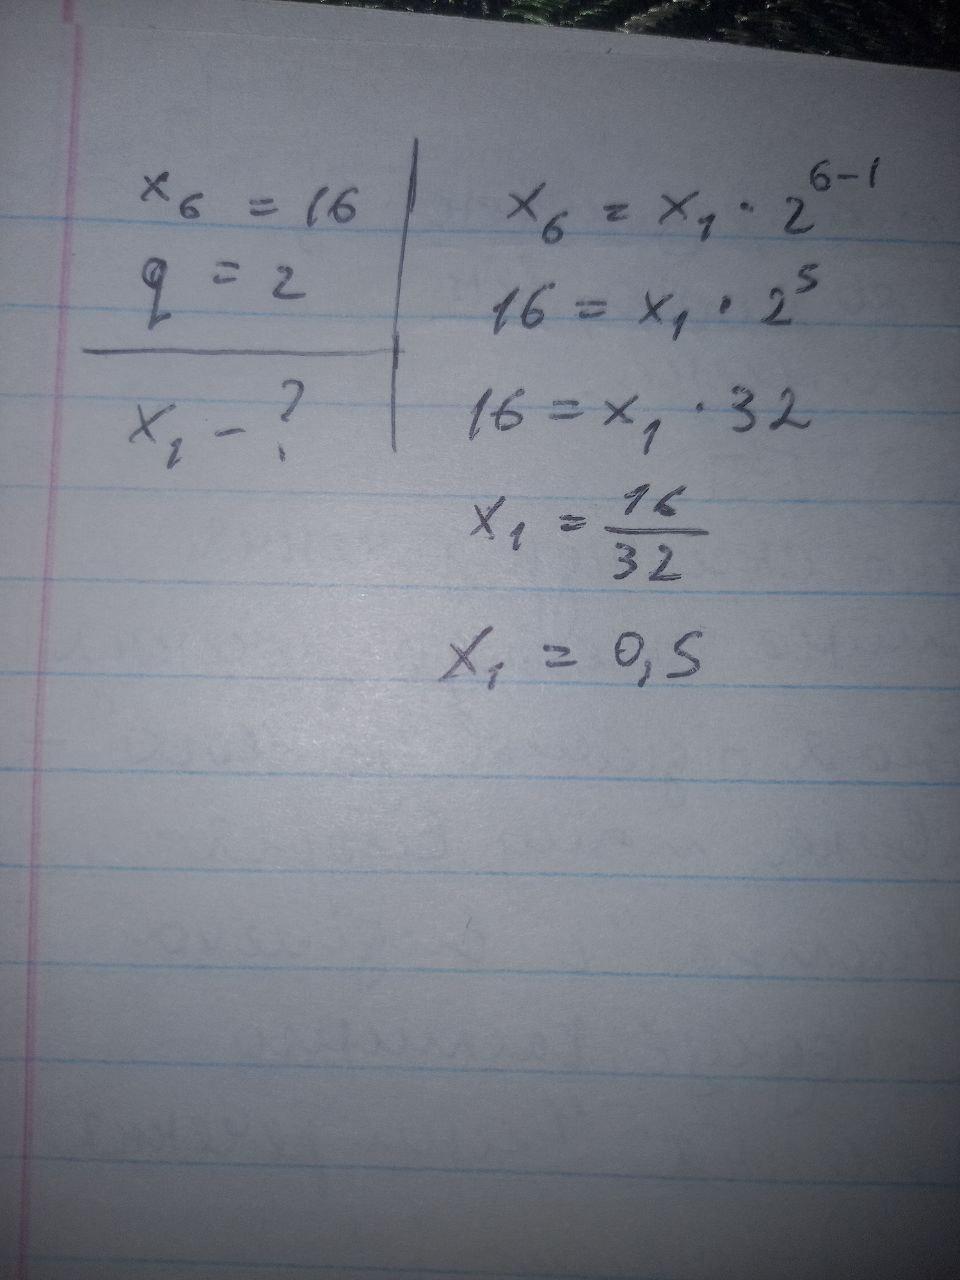 x₆ = 16
q = 2
x₁ - ?
x₆ = x₁ · 2⁶⁻¹
16 = x₁ · 2⁵
16 = x₁ · 32
x₁ = 16/32
x₁ = 0,5